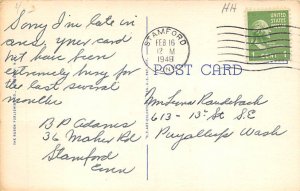 Sorry I'm late in
ans, your card
but have been
extremely busy for
the last several
months
B P Adams
36 Maher Rd
Stamford
Conn
HH
STAMFORD
FEB 16
12 M
1949
CONN.
POST CARD
Mrs Lena
613 - 13 St S.E
Puyallup Wash
1¢